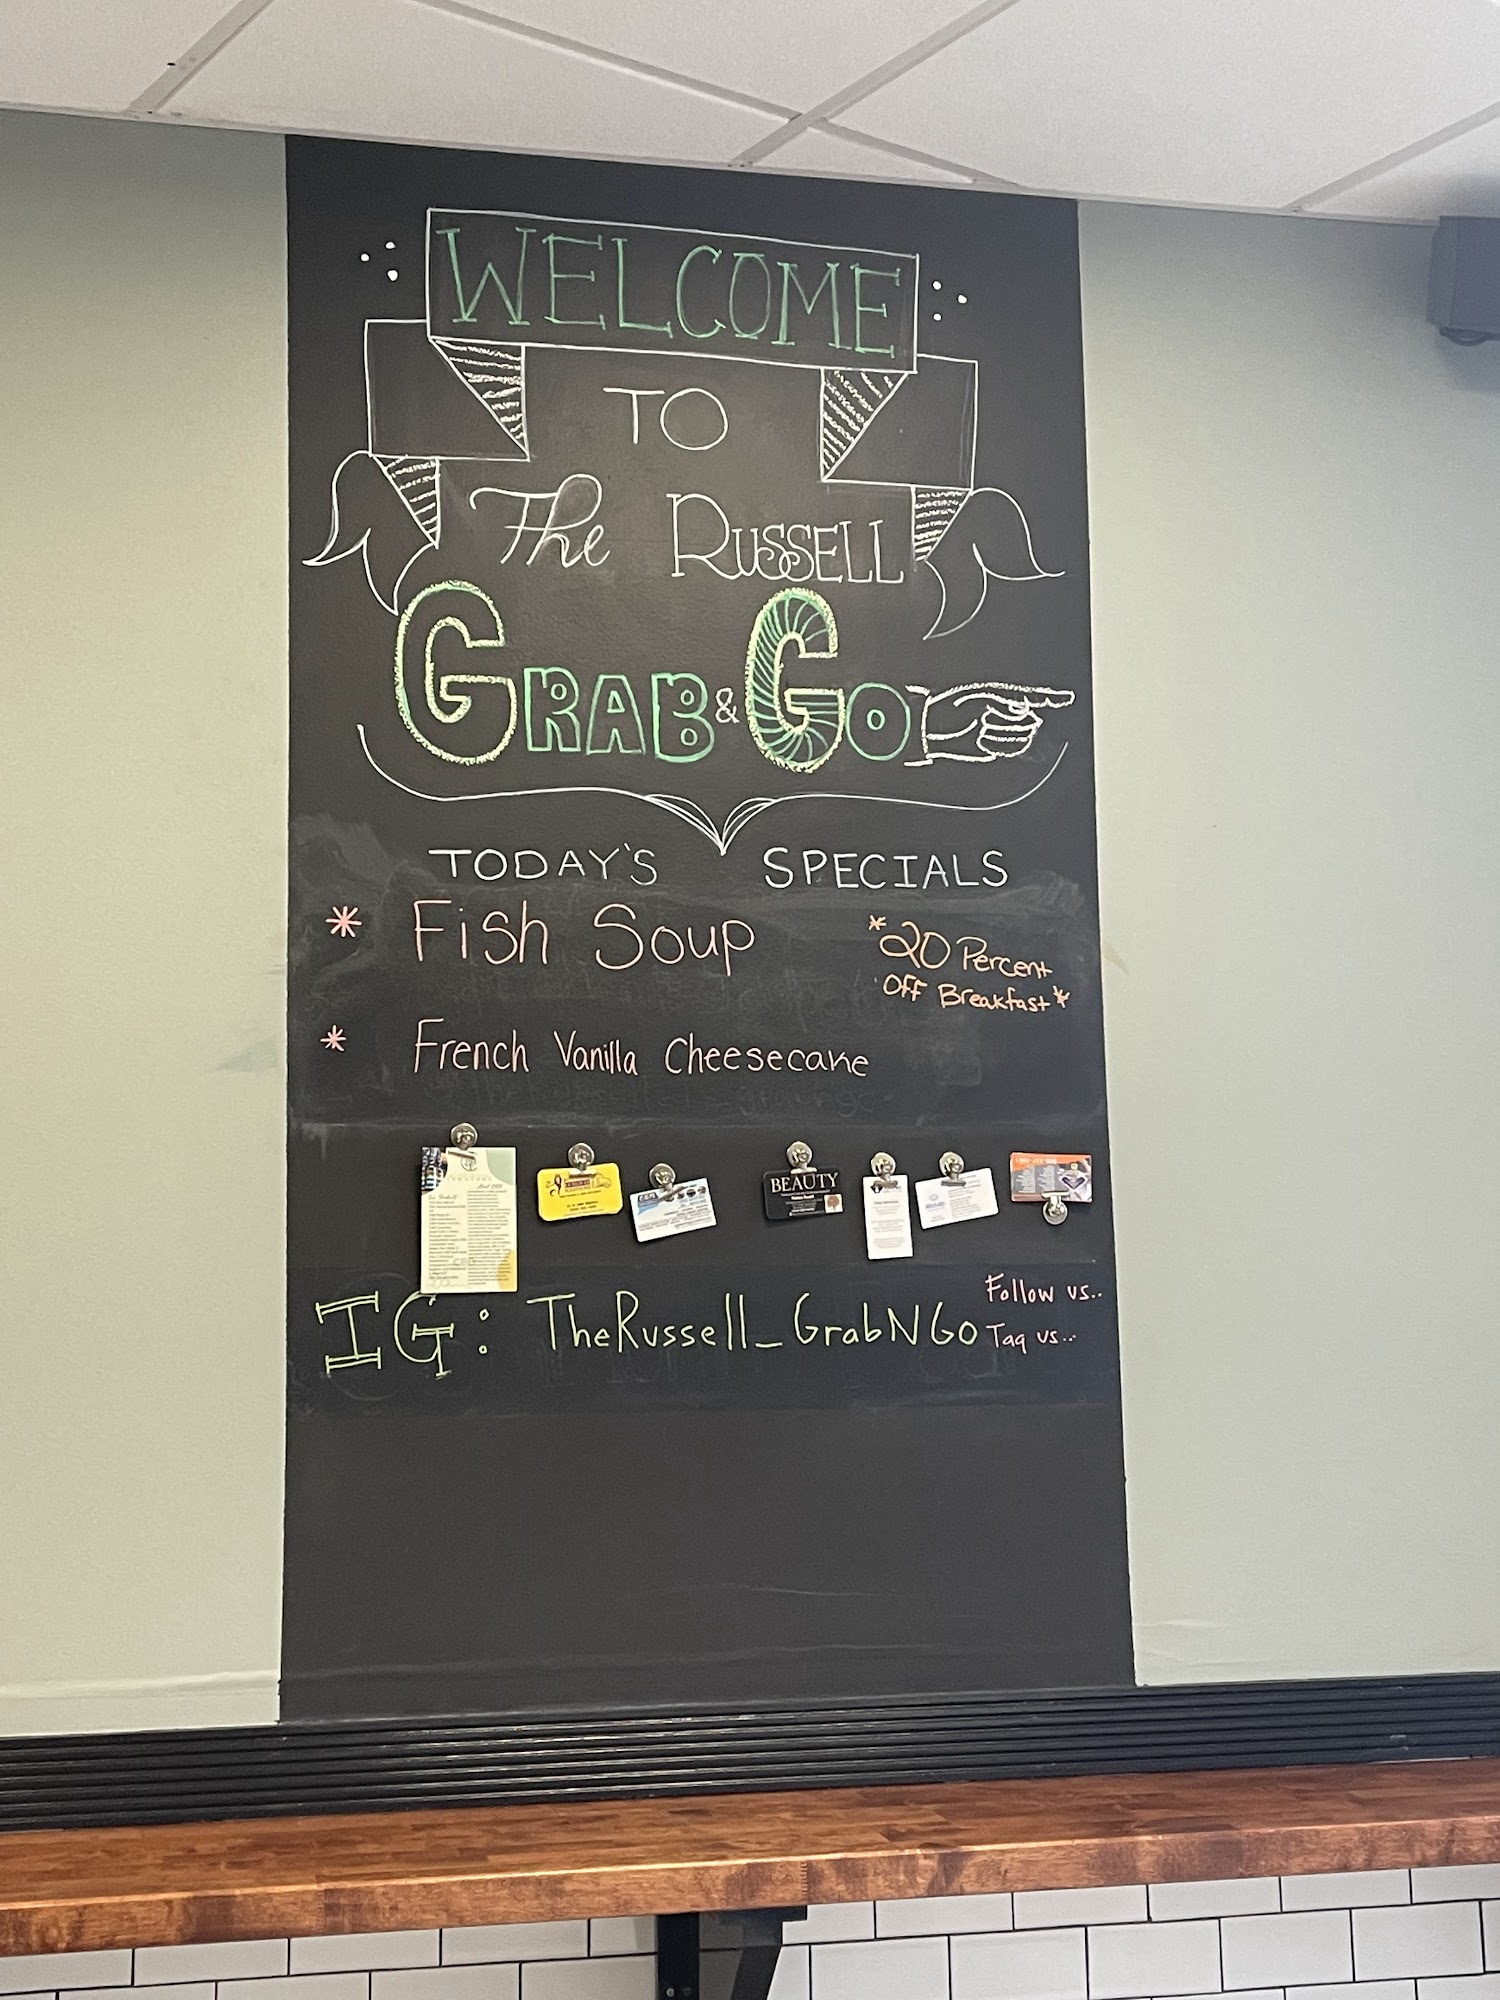 WELCOME
TO
The RUSSELL
GRAB & GO
TODAY'S SPECIALS
* Fish Soup
*20 Percent
Off Breakfast*
* French Vanilla Cheesecake
BEAUTY
IG: TheRussell_GrabNGo
Follow us..
Tag us...